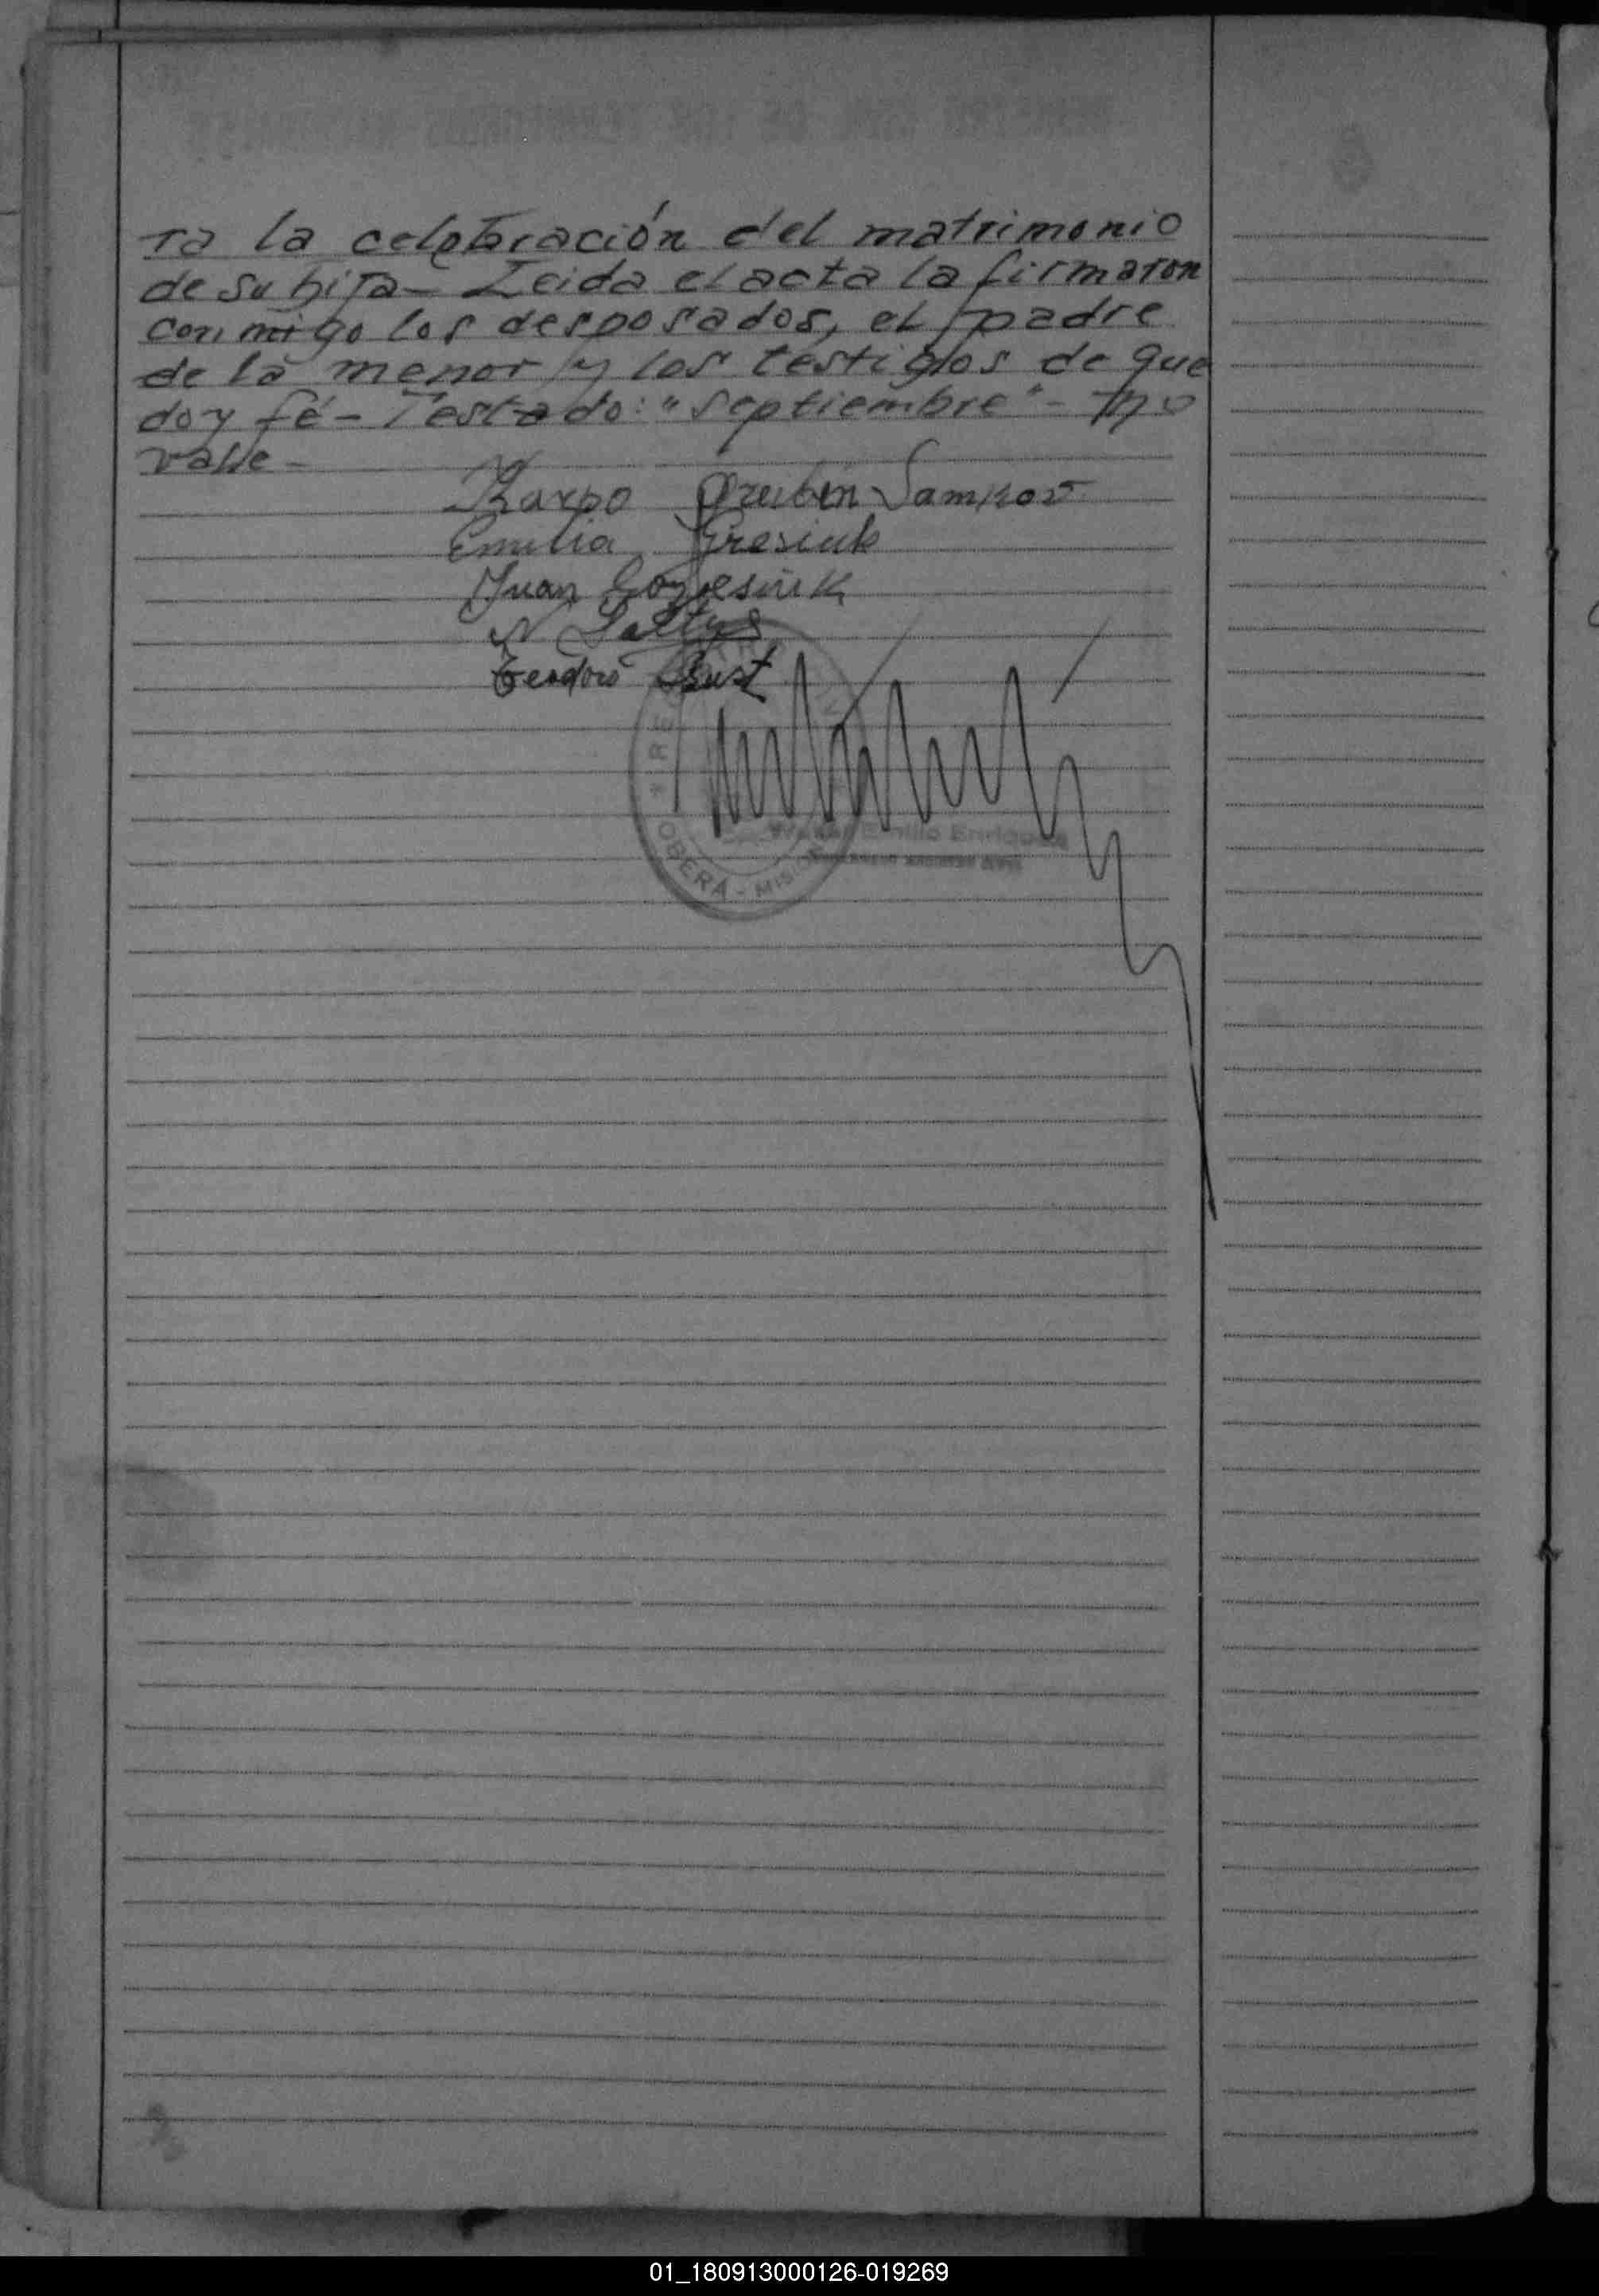 ra la celebración del matrimonio
de su hija - Leida el acta la firmaron
con migo los desposados, el padre
de la menor y los testigos de que
doy fé - Testado: "septiembre" - no
vale -
Karpo
Emilia Gresiuk
Juan
Teodoro Sust
* RE
OBERÁ - MISIO
Emilio Enriquez
01_180913000126-019269